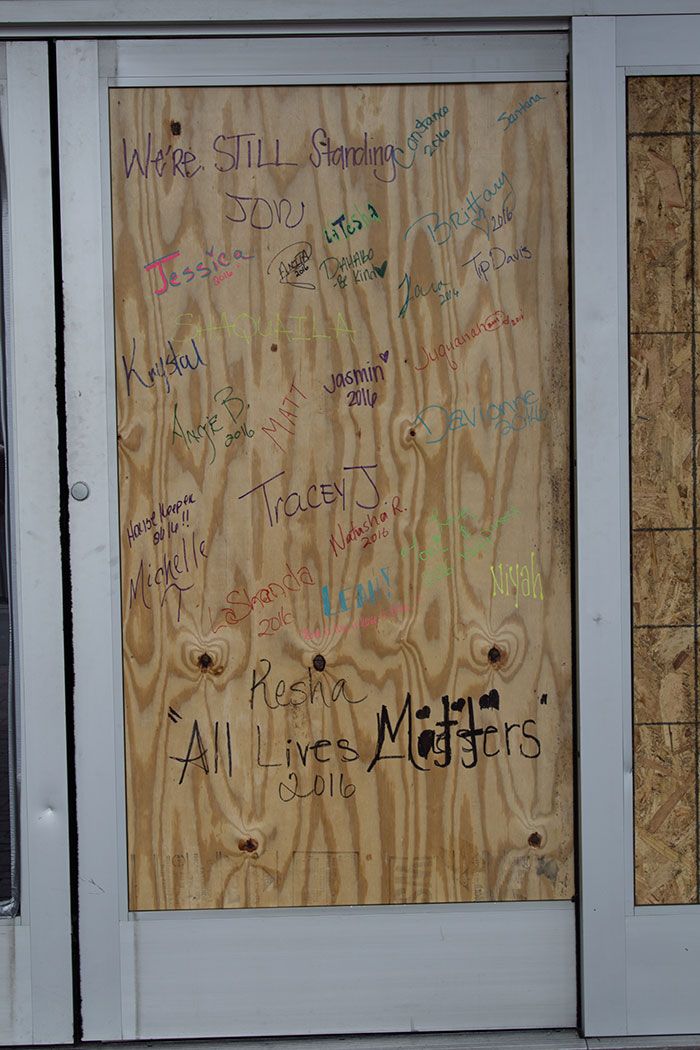 We're STILL Standing
Constance
2016
Santana
JON
LaTesha
Brittany
2016
Jessica
2016
ANITA
2016
DAHABO
-Be Kind
Laura
2016
Tip Davis
SHAQUAILA
Juquanah
Krystal
Jasmin
2016
ANGIE B.
2016
MATT
Davionne
2016
TRACEY J
House Keeper
2016!!
Natasha R.
2016
Michelle
T.
LaShanda
2016
LEAH!
Niyah
Kesha
"All Lives Matters"
2016